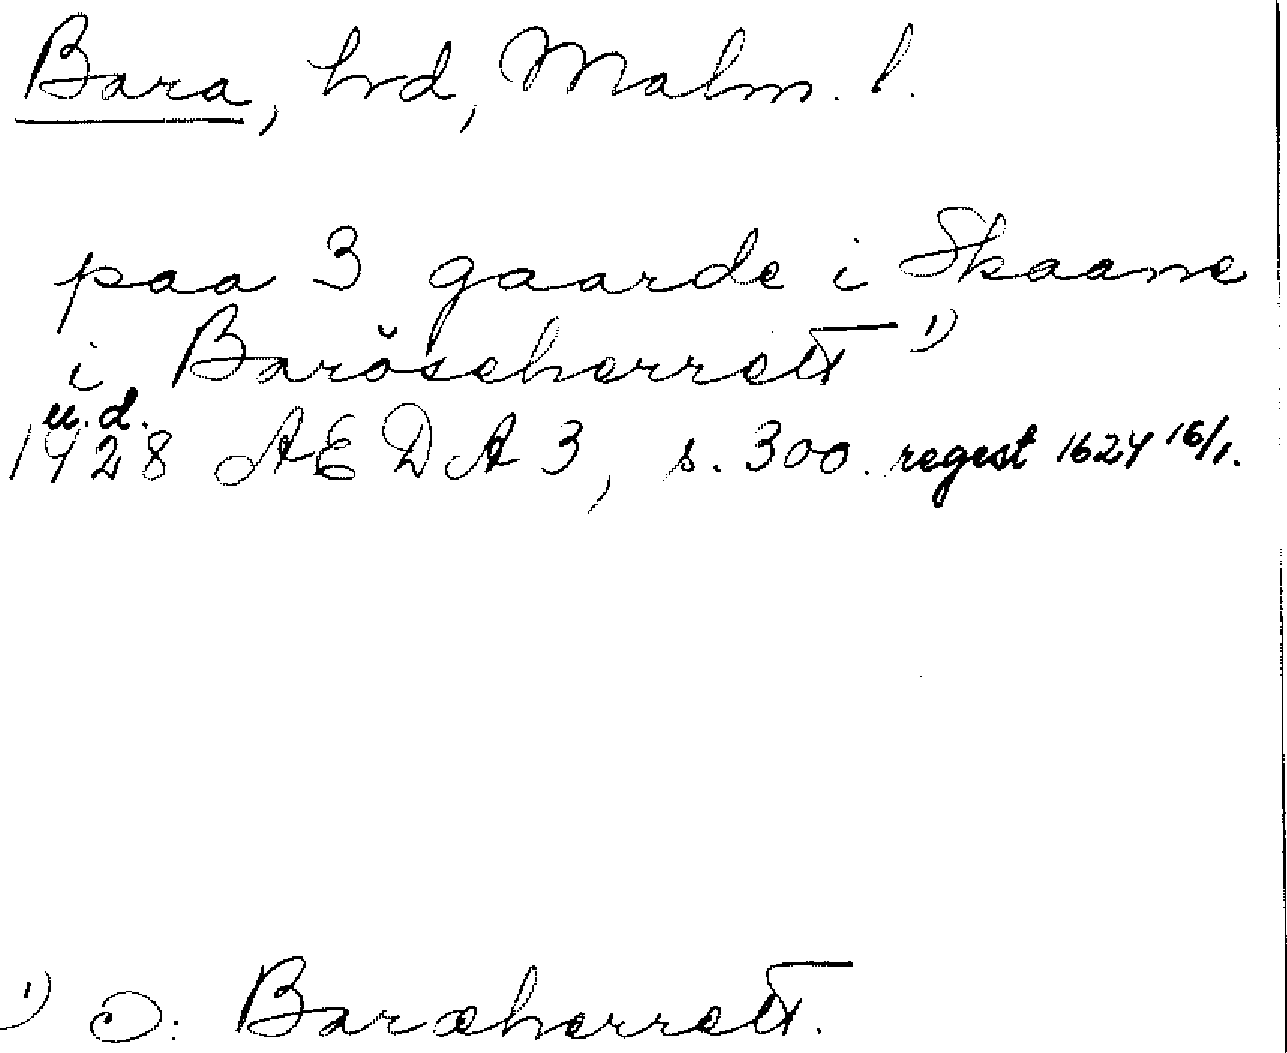 Bara, hrd, Malm. l.
paa 3 gaarde i Skaane
i Baröseherrett 1)
u.d.
1428 AEDA 3, s. 300. regest 1624 16/1.
1) ɔ: Baræherrett.